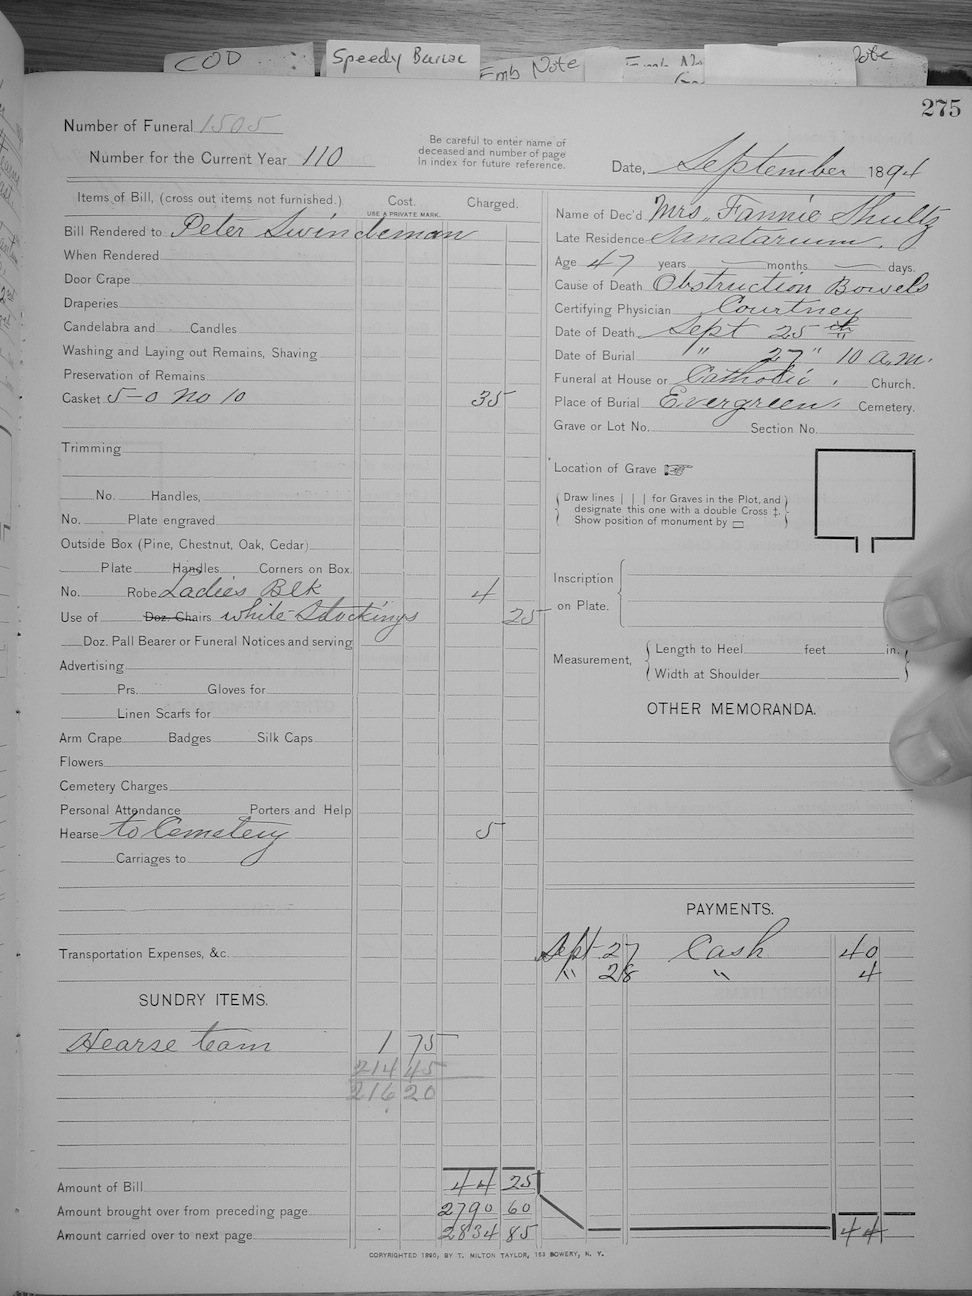 COD
Speedy Burial
Emb Note
Robe
275
Number of Funeral 1505
Number for the Current Year 110
Be careful to enter name of
deceased and number of page
in index for future reference.
Date, September 1894
Items of Bill, (cross out items not furnished.)
Cost.
USE A PRIVATE MARK.
Charged.
Bill Rendered to Peter Swindeman
When Rendered
Door Crape
Draperies
Candelabra and Candles
Washing and Laying out Remains, Shaving
Preservation of Remains
Casket 5-0 No 10 35
Trimming
No. Handles,
No. Plate engraved
Outside Box (Pine, Chestnut, Oak, Cedar)
Plate Handles Corners on Box.
No. Robe Ladies Blk 4
Use of Doz. Chairs white Stockings 25
Doz. Pall Bearer or Funeral Notices and serving
Advertising
Prs. Gloves for
Linen Scarfs for
Arm Crape Badges Silk Caps
Flowers
Cemetery Charges
Personal Attendance Porters and Help
Hearse to Cemetery 5
Carriages to
Transportation Expenses, &c.
SUNDRY ITEMS.
Hearse team 1 75
214 45
216 20
Amount of Bill 44 25
Amount brought over from preceding page 2790 60
Amount carried over to next page 2834 85
Name of Dec'd Mrs. Fannie Shultz
Late Residence Sanatarium.
Age 47 years — months — days.
Cause of Death Obstruction Bowels
Certifying Physician Courtney
Date of Death Sept 25 th
Date of Burial " 27 " 10 a.m.
Funeral at House or Catholic. Church.
Place of Burial Evergreen. Cemetery.
Grave or Lot No. Section No.
Location of Grave ☞
Draw lines | | | for Graves in the Plot, and
designate this one with a double Cross ‡.
Show position of monument by ▭
Inscription
on Plate.
Measurement,
Length to Heel feet in.
Width at Shoulder
OTHER MEMORANDA.
PAYMENTS.
Sept 27 Cash 40
" 28 " 4
44
COPYRIGHTED 1890, BY T. MILTON TAYLOR, 163 BOWERY, N. Y.